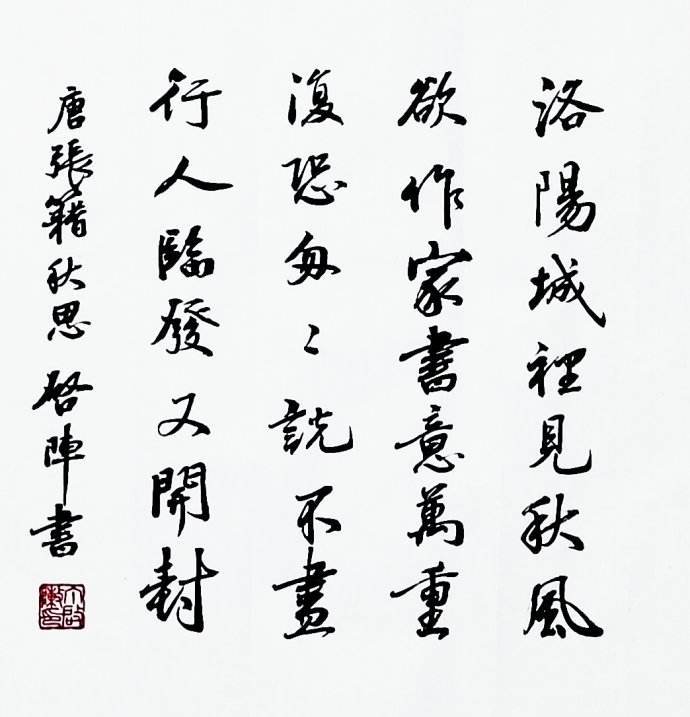 洛陽城裡見秋風
欲作家書意萬重
復恐匆〻說不盡
行人臨發又開封
唐張籍秋思 啓陣書